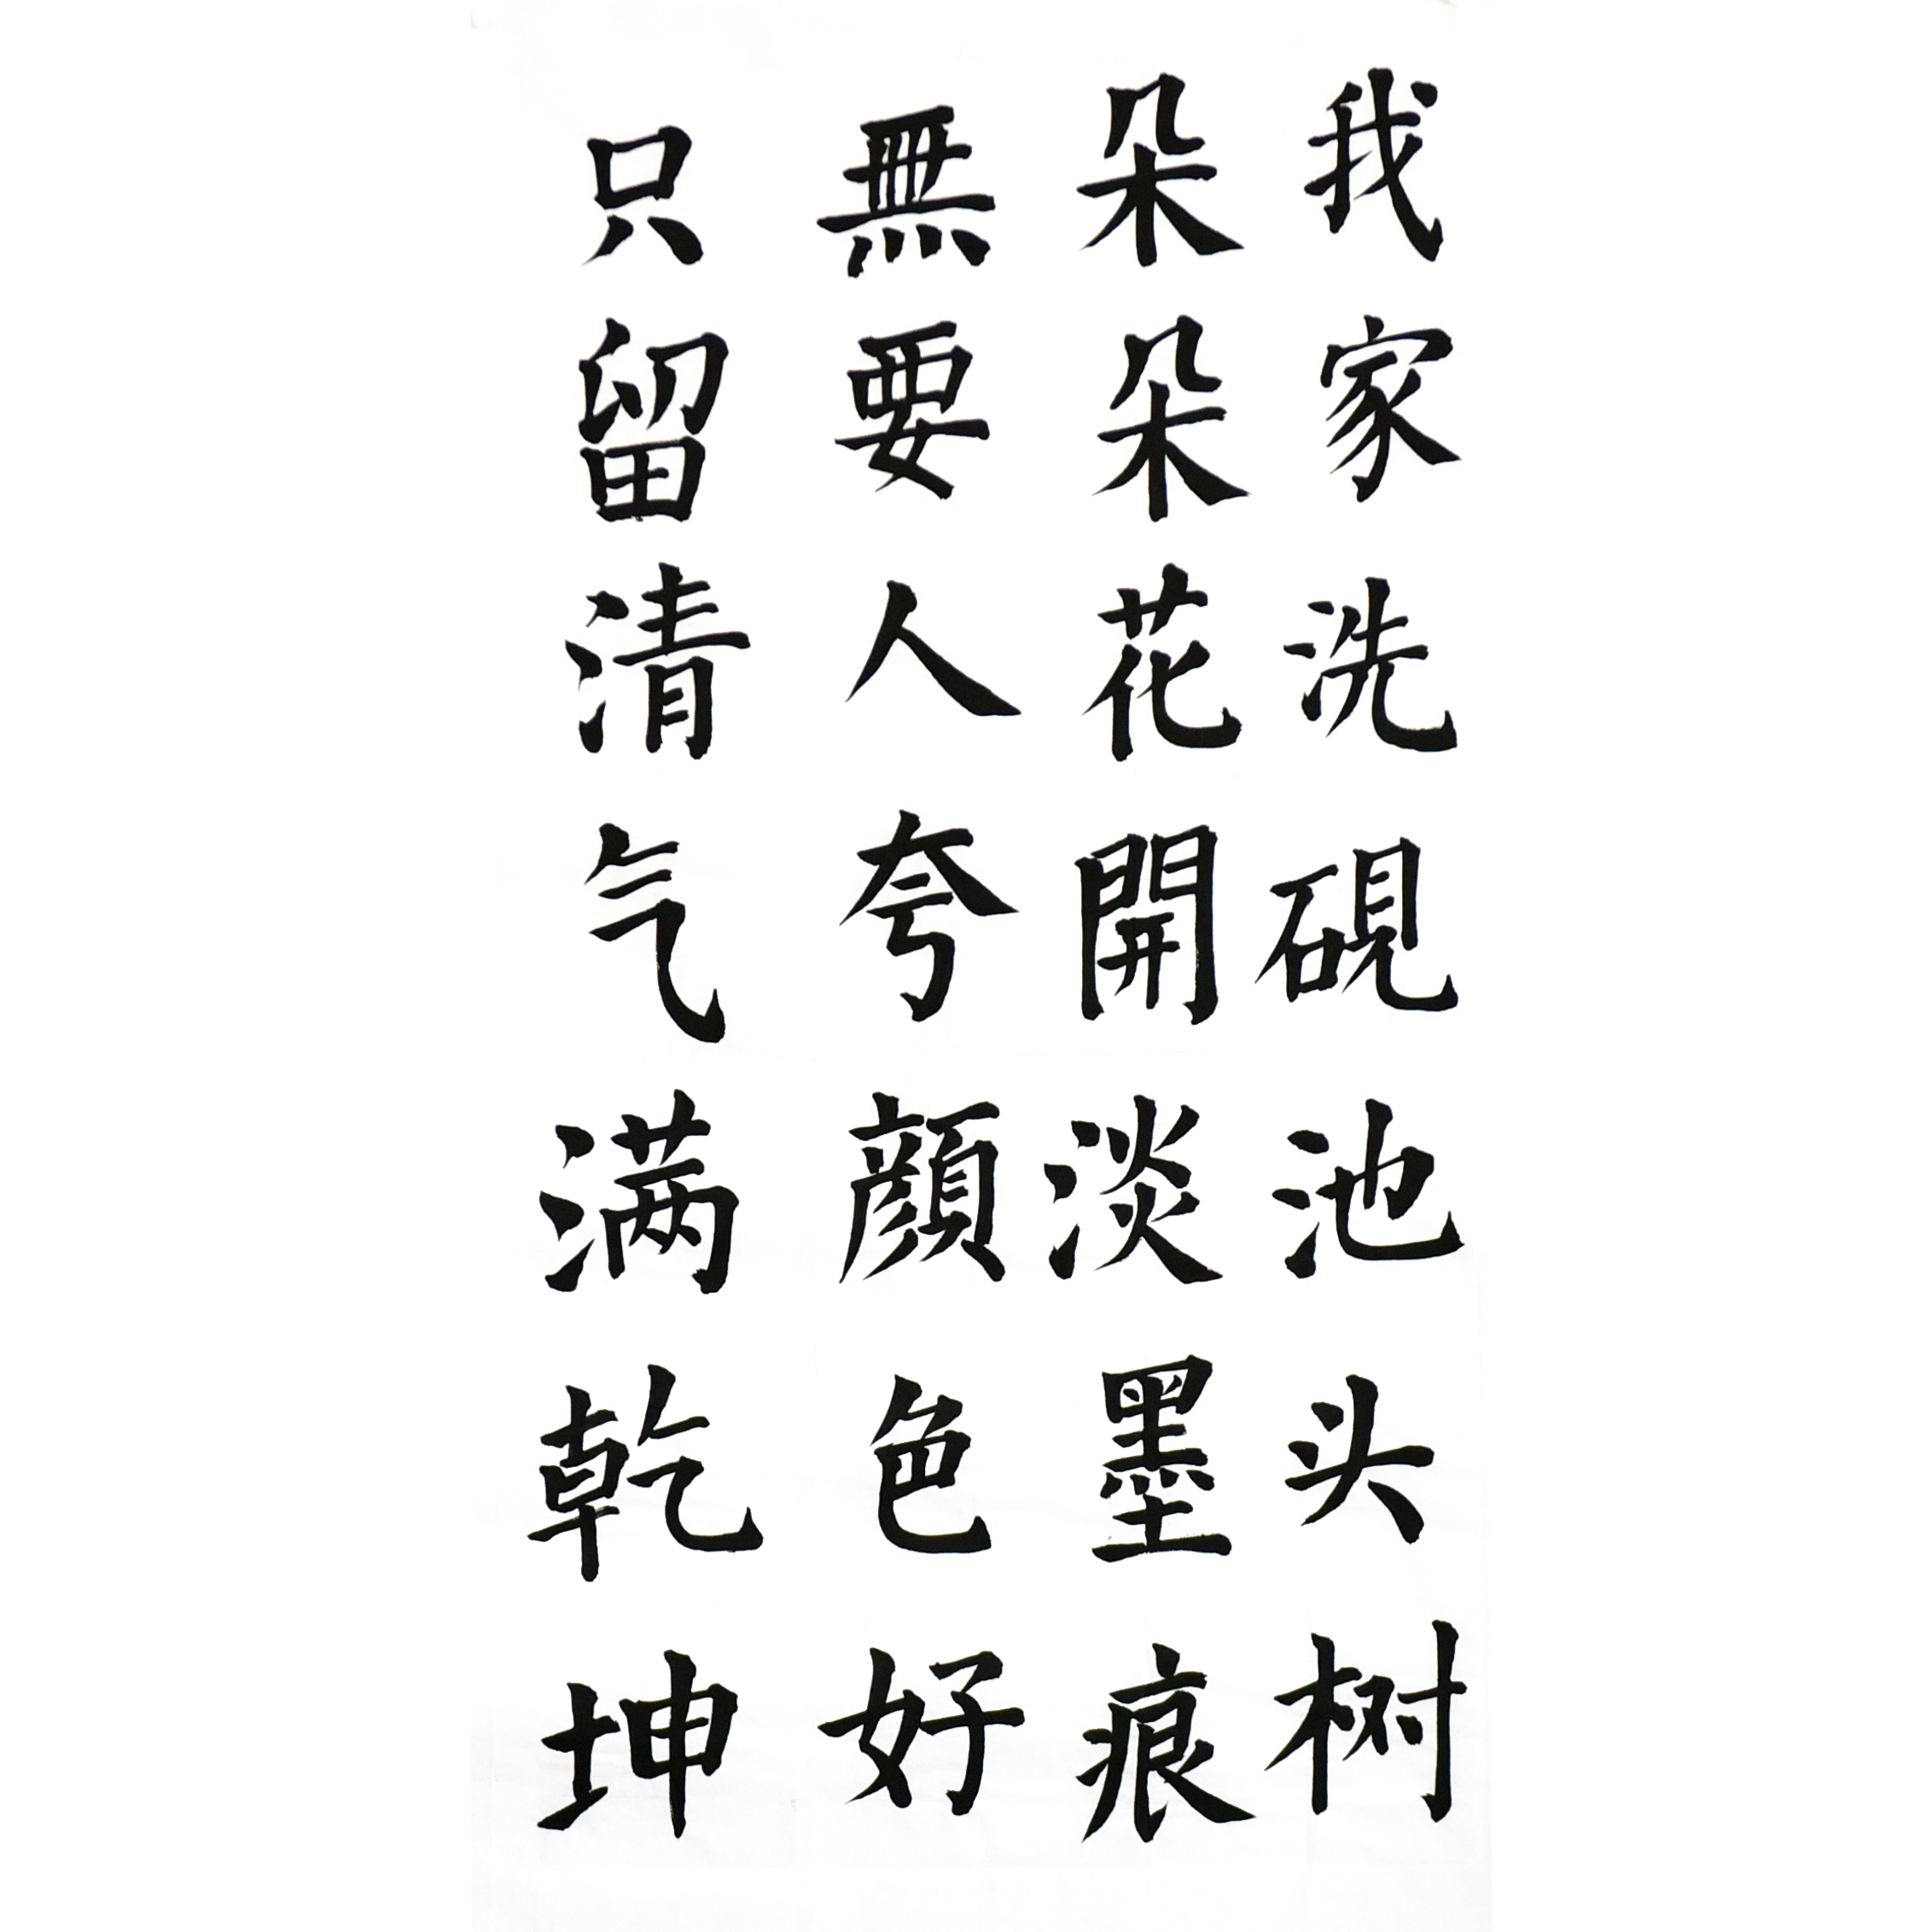 我家洗砚池头树
朵朵花開淡墨痕
無要人夸顔色好
只留清气满乾坤